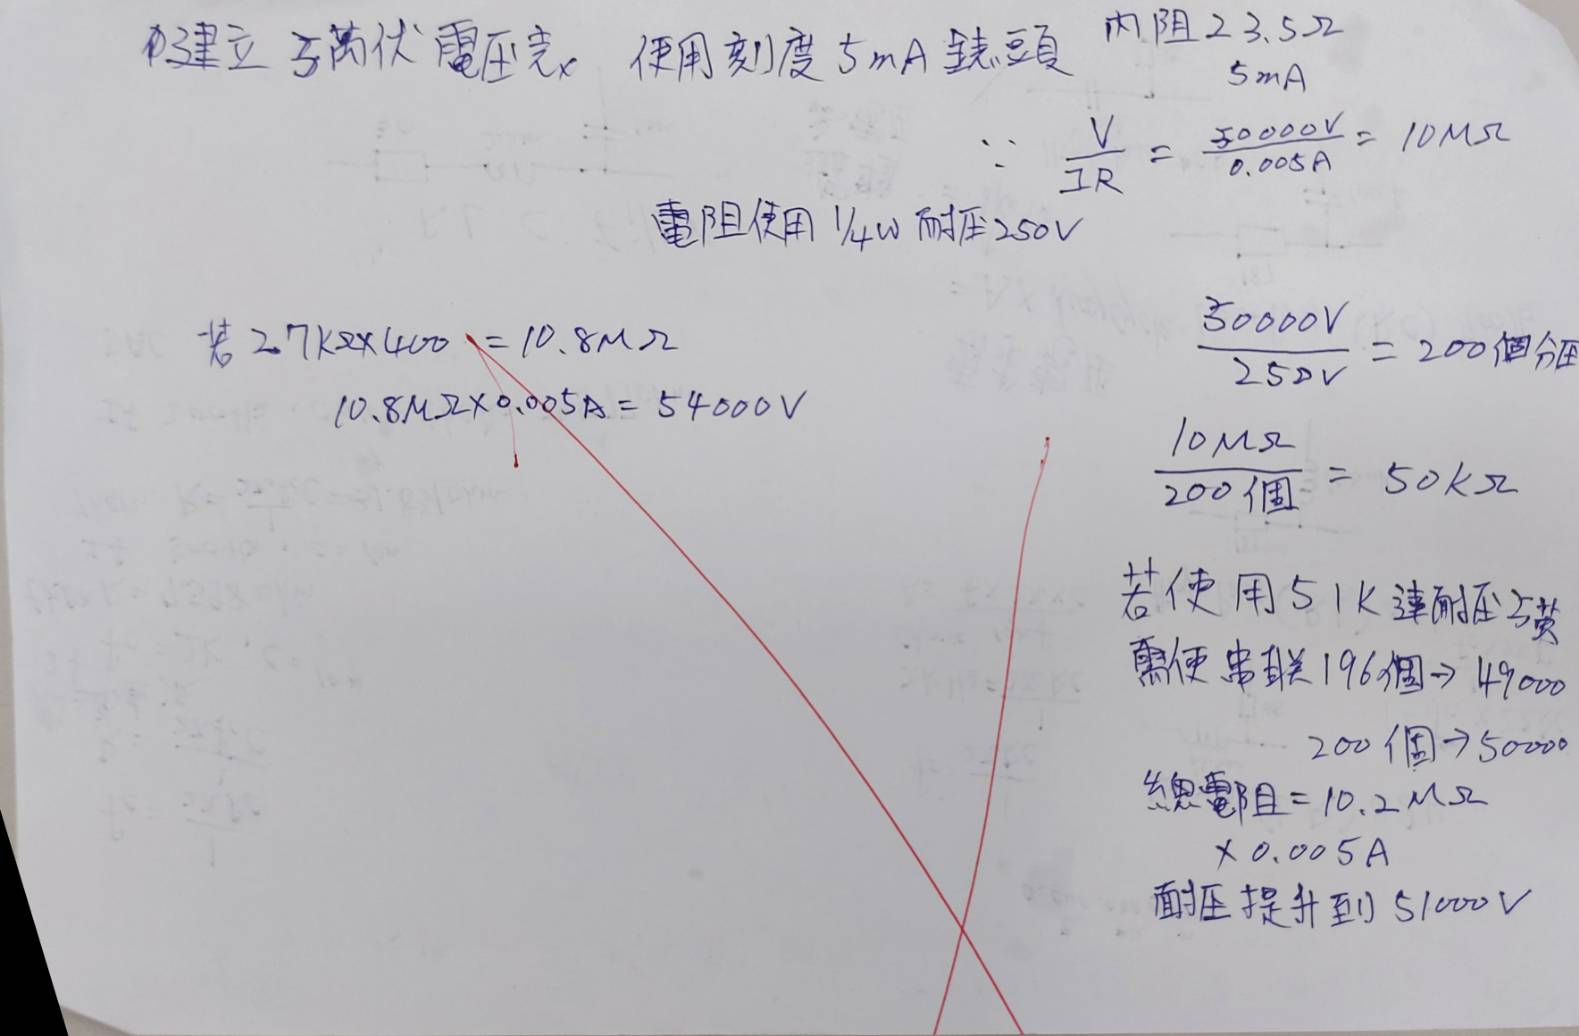 建立5萬伏電压表 使用刻度5mA錶頭 內阻23.5Ω
5mA
∵ V/IR = 50000V/0.005A = 10MΩ
電阻使用1/4W耐压250V
若2.7KΩ×400 = 10.8MΩ
10.8MΩ×0.005A = 54000V
50000V/250V = 200個分压
10MΩ/200個 = 50KΩ
若使用51K達耐压5萬
需使串联196個→49000
200個→50000
總電阻=10.2MΩ
×0.005A
耐压提升到51000V